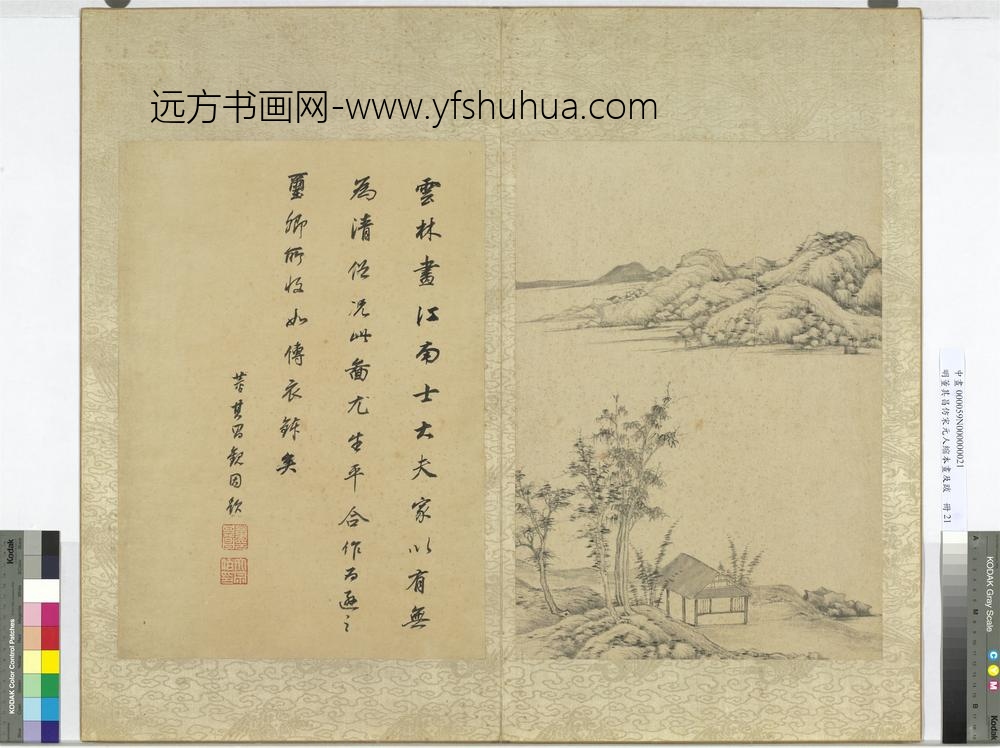 远方书画网-www.yfshuhua.com
雲林畫江南士大夫家以有無
為清俗況此圖尤生平合作
璽卿所收如傳衣鉢矣
董其昌觀因題
中畫000059N000000021
明董其昌仿宋元人縮本畫及跋 冊 21
Kodak
KODAK Color Control Patches
KODAK Gray Scale
C
Y
M
Kodak
A
M
B